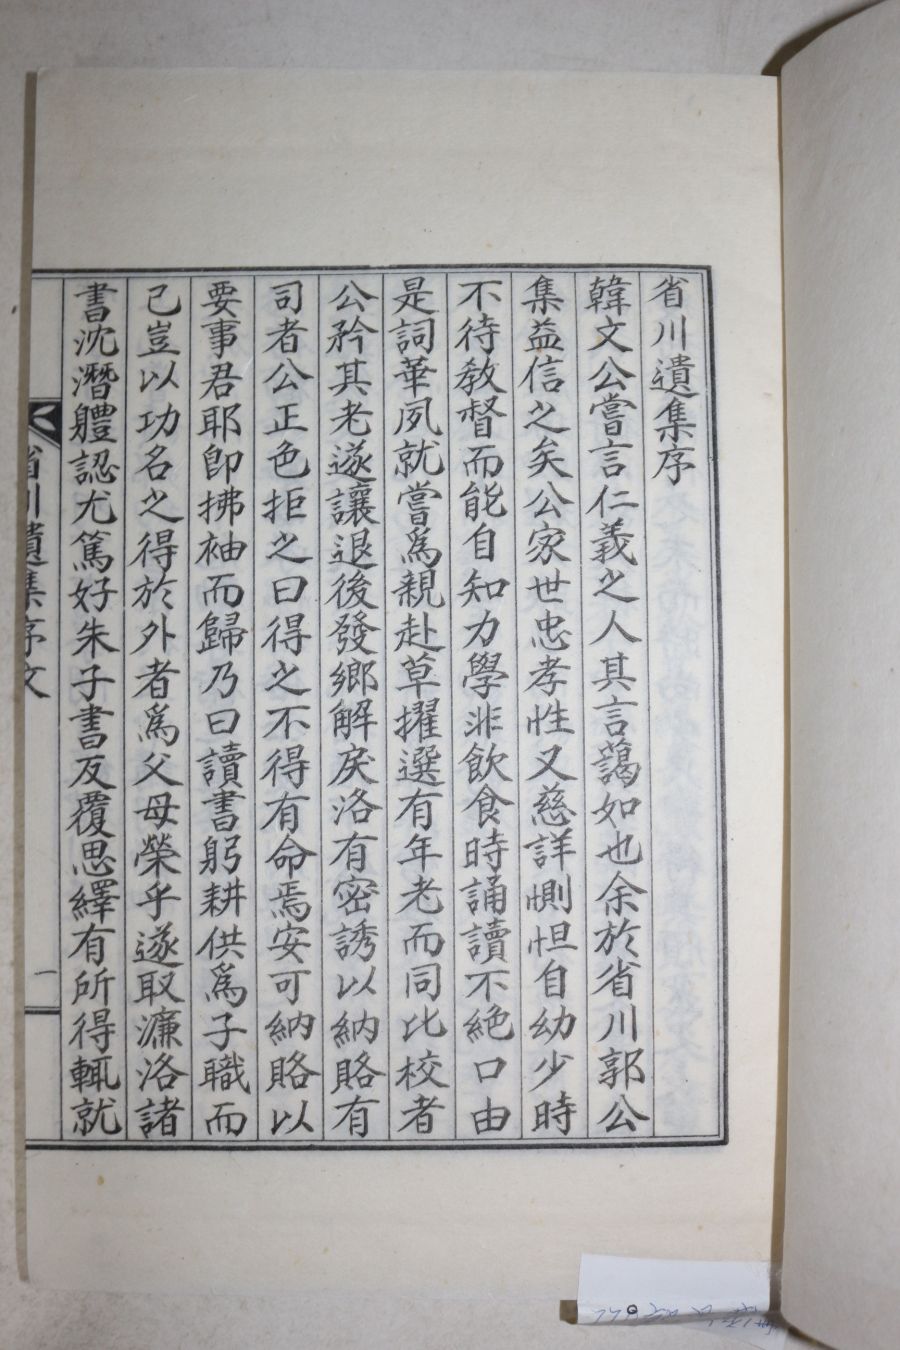 省川遺集序
韓文公嘗言仁義之人其言藹如也余於省川郭公
集益信之矣公家世忠孝性又慈詳惻怛自幼少時
不待敎督而能自知力學非飮食時誦讀不絶口由
是詞華夙就嘗爲親赴草擢選有年老而同比校者
公矜其老遂讓退後發鄕解戾洛有密誘以納賂有
司者公正色拒之曰得之不得有命焉安可納賂以
要事君耶卽拂袖而歸乃曰讀書躬耕供爲子職而
己豈以功名之得於外者爲父母榮乎遂取濂洛諸
書沈潛軆認尤篤好朱子書反覆思繹有所得輒就
省川遺集序文
一